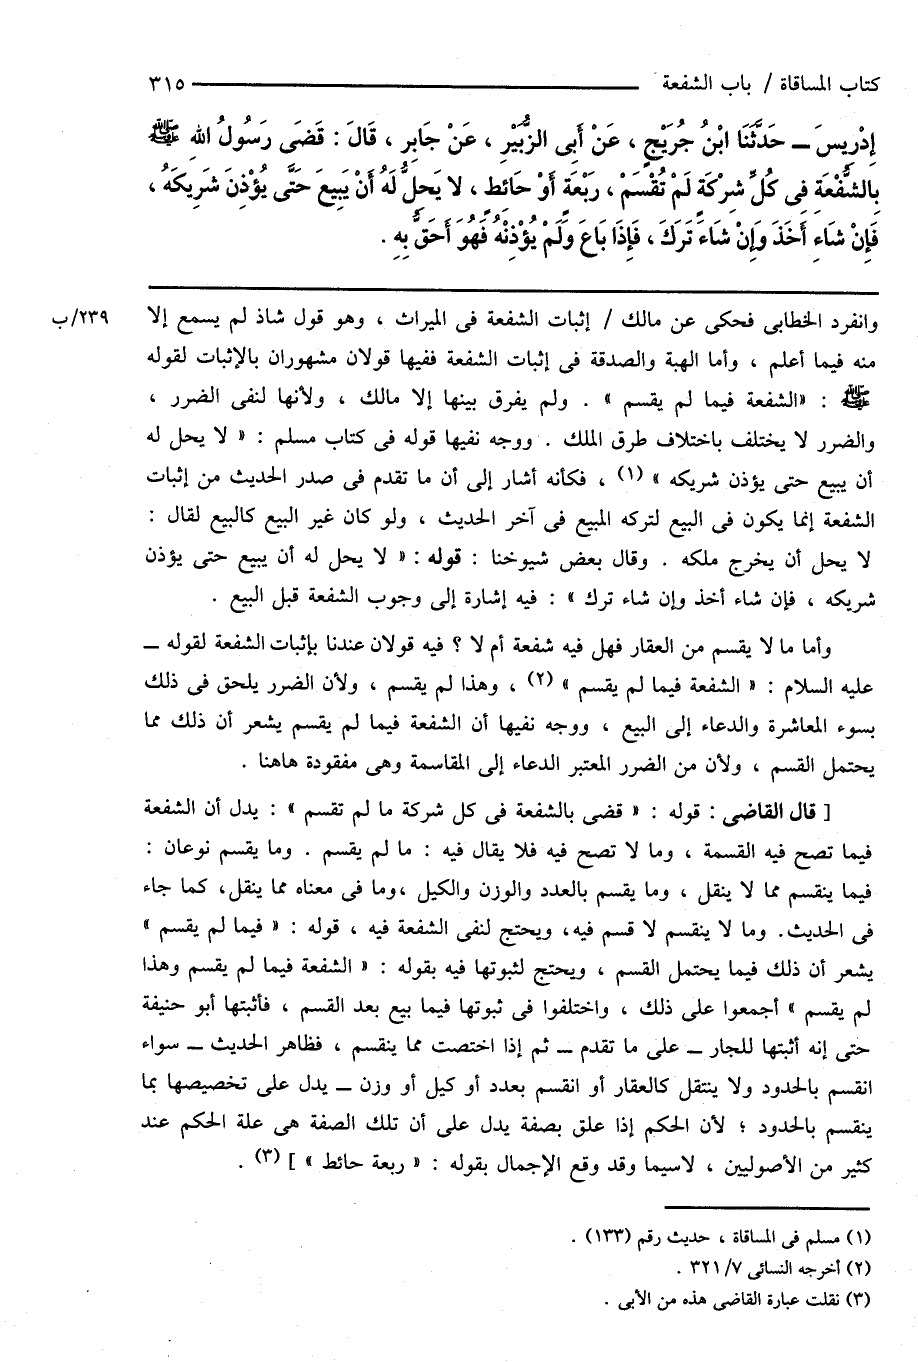 كتاب المساقاة / باب الشفعة ــــــ ٣١٥
إِدْرِيسَ ــ حَدَّثَنَا ابْنُ جُرَيْجٍ ، عَنْ أَبِى الزُّبَيْرِ ، عَنْ جَابِرٍ ، قَالَ : قَضَى رَسُولُ اللهِ ﷺ
بِالشُّفْعَةِ فِى كُلِّ شِرْكَةٍ لَمْ تُقْسَمْ ، رَبْعَةٍ أَوْ حَائِطٍ ، لا يَحِلُّ لَهُ أَنْ يَبِيعَ حَتَّى يُؤْذِنَ شَرِيكَهُ ،
فَإِنْ شَاءَ أَخَذَ وَإِنْ شَاءَ تَرَكَ ، فَإِذَا بَاعَ وَلَمْ يُؤْذِنْهُ فَهُوَ أَحَقُّ بِهِ .
وانفرد الخطابى فحكى عن مالك / إثبات الشفعة فى الميراث ، وهو قول شاذ لم يسمع إلا
٢٣٩/ب
منه فيما أعلم ، وأما الهبة والصدقة فى إثبات الشفعة ففيها قولان مشهوران بالإثبات لقوله
ﷺ : «الشفعة فيما لم يقسم » . ولم يفرق بينها إلا مالك ، ولأنها لنفى الضرر ،
والضرر لا يختلف باختلاف طرق الملك . ووجه نفيها قوله فى كتاب مسلم : « لا يحل له
أن يبيع حتى يؤذن شريكه » (١) ، فكأنه أشار إلى أن ما تقدم فى صدر الحديث من إثبات
الشفعة إنما يكون فى البيع لتركه المبيع فى آخر الحديث ، ولو كان غير البيع كالبيع لقال :
لا يحل أن يخرج ملكه . وقال بعض شيوخنا : قوله : « لا يحل له أن يبيع حتى يؤذن
شريكه ، فإن شاء أخذ وإن شاء ترك » : فيه إشارة إلى وجوب الشفعة قبل البيع .
وأما ما لا يقسم من العقار فهل فيه شفعة أم لا ؟ فيه قولان عندنا بإثبات الشفعة لقوله ــ
عليه السلام : « الشفعة فيما لم يقسم » (٢) ، وهذا لم يقسم ، ولأن الضرر يلحق فى ذلك
بسوء المعاشرة والدعاء إلى البيع ، ووجه نفيها أن الشفعة فيما لم يقسم يشعر أن ذلك مما
يحتمل القسم ، ولأن من الضرر المعتبر الدعاء إلى المقاسمة وهى مفقودة هاهنا .
[ قال القاضى : قوله : « قضى بالشفعة فى كل شركة ما لم تقسم » : يدل أن الشفعة
فيما تصح فيه القسمة ، وما لا تصح فيه فلا يقال فيه : ما لم يقسم . وما يقسم نوعان :
فيما ينقسم مما لا ينقل ، وما يقسم بالعدد والوزن والكيل ،وما فى معناه مما ينقل، كما جاء
فى الحديث. وما لا ينقسم لا قسم فيه، ويحتج لنفى الشفعة فيه ، قوله : « فيما لم يقسم »
يشعر أن ذلك فيما يحتمل القسم ، ويحتج لثبوتها فيه بقوله : « الشفعة فيما لم يقسم وهذا
لم يقسم » أجمعوا على ذلك ، واختلفوا فى ثبوتها فيما بيع بعد القسم ، فأثبتها أبو حنيفة
حتى إنه أثبتها للجار ــ على ما تقدم ــ ثم إذا اختصت مما ينقسم ، فظاهر الحديث ــ سواء
انقسم بالحدود ولا ينتقل كالعقار أو انقسم بعدد أو كيل أو وزن ــ يدل على تخصيصها بما
ينقسم بالحدود ؛ لأن الحكم إذا علق بصفة يدل على أن تلك الصفة هى علة الحكم عند
كثير من الأصوليين ، لاسيما وقد وقع الإجمال بقوله : « ربعة حائط » ] (٣) .
(١) مسلم فى المساقاة ، حديث رقم (١٣٣) .
(٢) أخرجه النسائى ٧/ ٣٢١ .
(٣) نقلت عبارة القاضى هذه من الأبى .